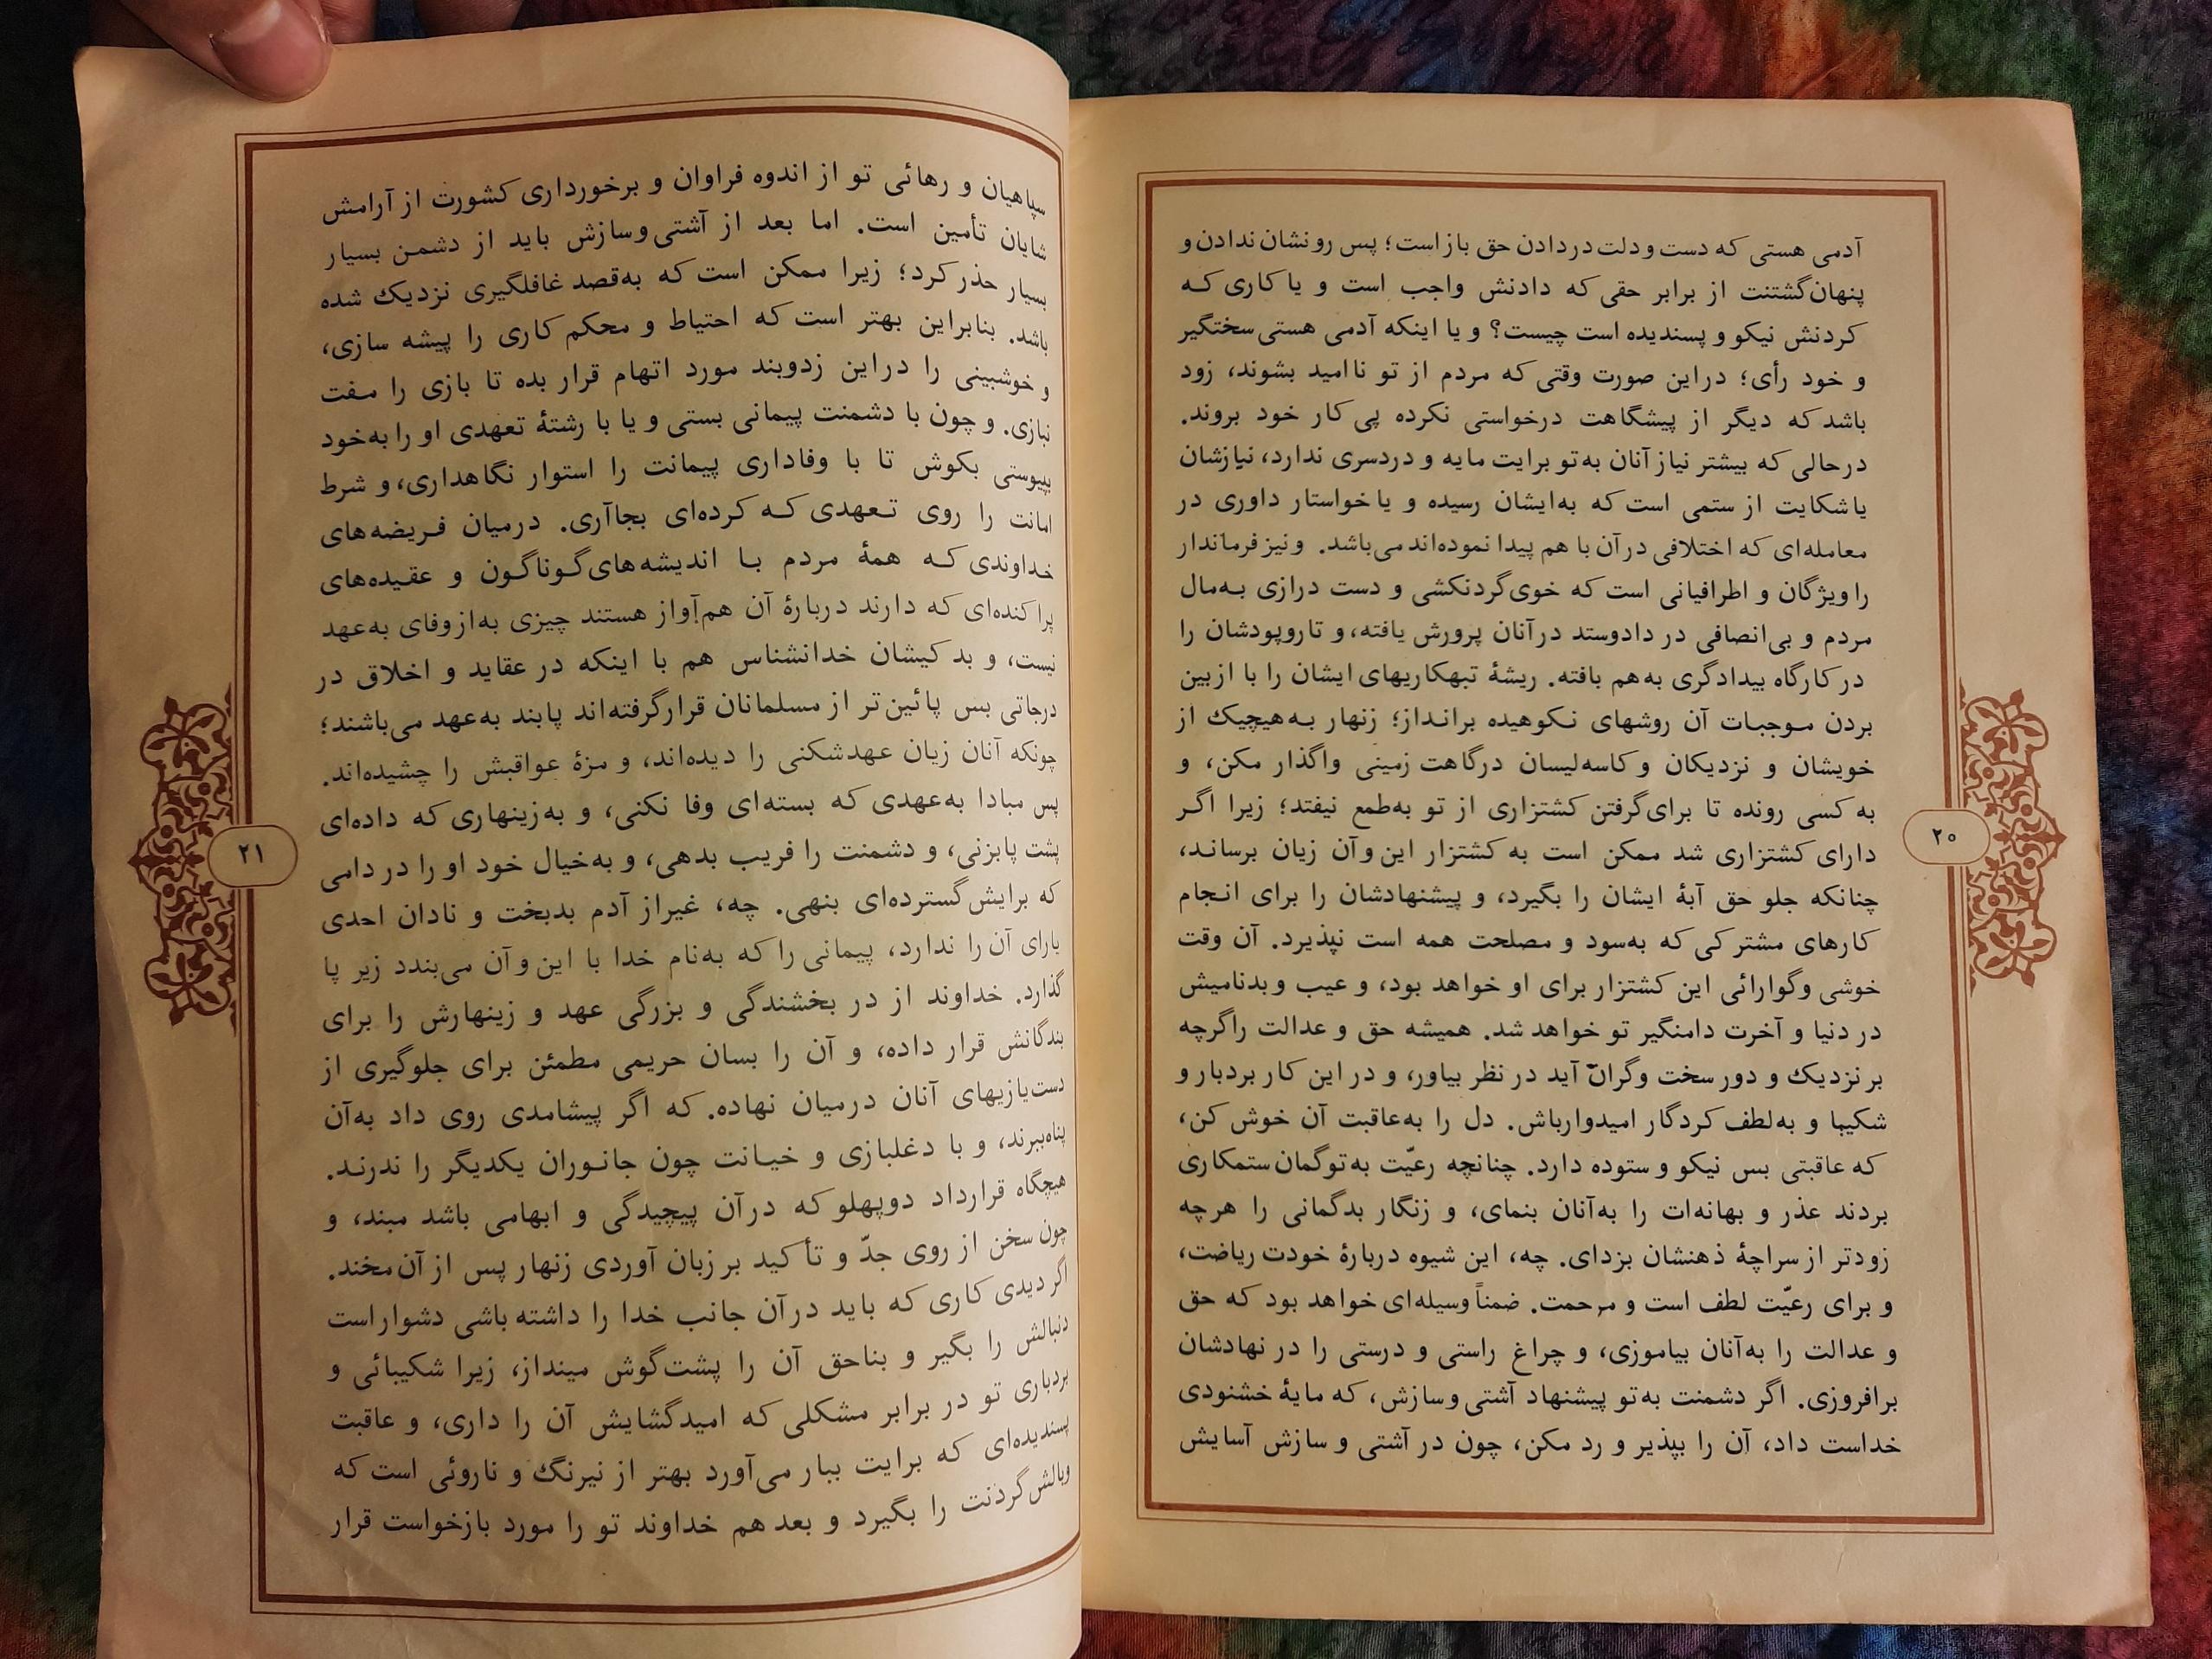 آدمی هستی که دست و دلت در دادن حق باز است؛ پس رو نشان ندادن و
پنهان گشتنت از برابر حقی که دادنش واجب است و یا کاری که
کردنش نیکو و پسندیده است چیست؟ و یا اینکه آدمی هستی سختگیر
و خود رأی؛ دراین صورت وقتی که مردم از تو ناامید بشوند، زود
باشد که دیگر از پیشگاهت درخواستی نکرده پی کار خود بروند.
درحالی که بیشتر نیاز آنان به‌تو برایت مایه و دردسری ندارد، نیازشان
یا شکایت از ستمی است که به‌ایشان رسیده و یا خواستار داوری در
معامله‌ای که اختلافی در آن با هم پیدا نموده‌اند می‌باشد. و نیز فرماندار
را ویژگان و اطرافیانی است که خوی گردنکشی و دست درازی به‌مال
مردم و بی‌انصافی در دادوستد در آنان پرورش یافته، و تاروپودشان را
در کارگاه بیدادگری به‌هم بافته. ریشهٔ تبهکاریهای ایشان را با از بین
بردن موجبات آن روشهای نکوهیده برانداز؛ زنهار به‌هیچیک از
خویشان و نزدیکان و کاسه‌لیسان درگاهت زمینی واگذار مکن، و
به کسی رونده تا برای گرفتن کشتزاری از تو به‌طمع نیفتد؛ زیرا اگر
دارای کشتزاری شد ممکن است به کشتزار این و آن زیان برساند،
چنانکه جلو حق آبهٔ ایشان را بگیرد، و پیشنهادشان را برای انجام
کارهای مشترکی که به‌سود و مصلحت همه است نپذیرد. آن وقت
خوشی و گوارائی این کشتزار برای او خواهد بود، و عیب و بدنامیش
در دنیا و آخرت دامنگیر تو خواهد شد. همیشه حق و عدالت را گرچه
بر نزدیک و دور سخت و گران آید در نظر بیاور، و در این کار بردبار و
شکیبا و به‌لطف کردگار امیدوار باش. دل را به‌عاقبت آن خوش کن،
که عاقبتی بس نیکو و ستوده دارد. چنانچه رعیّت به‌تو گمان ستمکاری
بردند عذر و بهانه‌ات را به‌آنان بنمای، و زنگار بدگمانی را هرچه
زودتر از سراچهٔ ذهنشان بزدای. چه، این شیوه دربارهٔ خودت ریاضت،
و برای رعیّت لطف است و مرحمت. ضمناً وسیله‌ای خواهد بود که حق
و عدالت را به‌آنان بیاموزی، و چراغ راستی و درستی را در نهادشان
برافروزی. اگر دشمنت به‌تو پیشنهاد آشتی و سازش، که مایهٔ خشنودی
خداست داد، آن را بپذیر و رد مکن، چون در آشتی و سازش آسایش
۲۰
سپاهیان و رهائی تو از اندوه فراوان و برخورداری کشورت از آرامش
شایان تأمین است. اما بعد از آشتی و سازش باید از دشمن بسیار
بسیار حذر کرد؛ زیرا ممکن است که به‌قصد غافلگیری نزدیک شده
باشد. بنابراین بهتر است که احتیاط و محکم کاری را پیشه سازی،
و خوشبینی را دراین زدوبند مورد اتهام قرار بده تا بازی را مفت
نبازی. و چون با دشمنت پیمانی بستی و یا با رشتهٔ تعهدی او را به‌خود
بپیوستی بکوش تا با وفاداری پیمانت را استوار نگاهداری، و شرط
امانت را روی تعهدی که کرده‌ای بجاآری. درمیان فریضه‌های
خداوندی که همهٔ مردم با اندیشه‌های گوناگون و عقیده‌های
پراکنده‌ای که دارند دربارهٔ آن هم‌آواز هستند چیزی به‌از وفای به‌عهد
نیست، و بدکیشان خدانشناس هم با اینکه در عقاید و اخلاق در
درجاتی بس پائین‌تر از مسلمانان قرارگرفته‌اند پابند به‌عهد می‌باشند؛
چونکه آنان زیان عهدشکنی را دیده‌اند، و مزهٔ عواقبش را چشیده‌اند.
پس مبادا به‌عهدی که بسته‌ای وفا نکنی، و به‌زینهاری که داده‌ای
پشت پابزنی، و دشمنت را فریب بدهی، و به‌خیال خود او را در دامی
که برایش گسترده‌ای بنهی. چه، غیر از آدم بدبخت و نادان احدی
یارای آن را ندارد، پیمانی را که به‌نام خدا با این و آن می‌بندد زیر پا
گذارد. خداوند از در بخشندگی و بزرگی عهد و زینهارش را برای
بندگانش قرار داده، و آن را بسان حریمی مطمئن برای جلوگیری از
دست‌یازیهای آنان درمیان نهاده. که اگر پیشامدی روی داد به‌آن
پناه‌ببرند، و با دغلبازی و خیانت چون جانوران یکدیگر را ندرند.
هیچگاه قرارداد دوپهلو که درآن پیچیدگی و ابهامی باشد مبند، و
چون سخن از روی جدّ و تأکید بر زبان آوردی زنهار پس از آن مخند.
اگر دیدی کاری که باید درآن جانب خدا را داشته باشی دشوار است
دنبالش را بگیر و بناحق آن را پشت گوش مینداز، زیرا شکیبائی و
بردباری تو در برابر مشکلی که امید گشایش آن را داری، و عاقبت
پسندیده‌ای که برایت ببار می‌آورد بهتر از نیرنگ و ناروئی است که
وبالش گردنت را بگیرد و بعد هم خداوند تو را مورد بازخواست قرار
۲۱